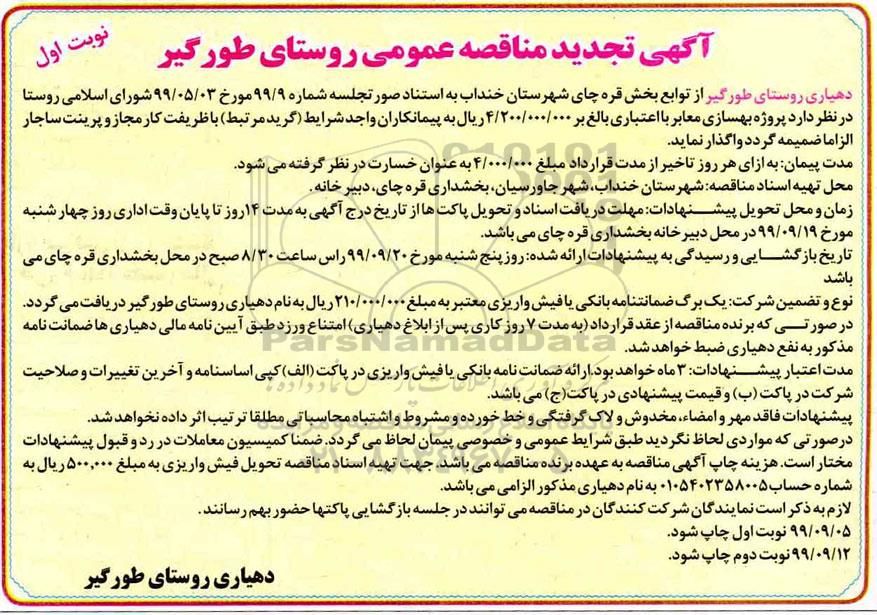 آگهی تجدید مناقصه عمومی روستای طورگیر
نوبت اول
دهیاری روستای طورگیر از توابع بخش قره چای شهرستان خنداب به استناد صورتجلسه شماره ۹۹/۹ مورخ ۹۹/۰۵/۰۳ شورای اسلامی روستا
در نظر دارد پروژه بهسازی معابر با اعتباری بالغ بر ۴/۲۰۰/۰۰۰/۰۰۰ ریال به پیمانکاران واجد شرایط (گرید مرتبط) با ظریفت کار مجاز و پرینت ساجار
الزاما ضمیمه گردد واگذار نماید.
مدت پیمان: به ازای هر روز تاخیر از مدت قرارداد مبلغ ۴/۰۰۰/۰۰۰ به عنوان خسارت در نظر گرفته می شود.
محل تهیه اسناد مناقصه: شهرستان خنداب، شهر جاورسیان، بخشداری قره چای، دبیرخانه.
زمان و محل تحویل پیشنهادات: مهلت دریافت اسناد و تحویل پاکت ها از تاریخ درج آگهی به مدت ۱۴ روز تا پایان وقت اداری روز چهارشنبه
مورخ ۹۹/۰۹/۱۹ در محل دبیرخانه بخشداری قره چای می باشد.
تاریخ بازگشایی و رسیدگی به پیشنهادات ارائه شده: روز پنج شنبه مورخ ۹۹/۰۹/۲۰ راس ساعت ۸/۳۰ صبح در محل بخشداری قره چای می
باشد
نوع و تضمین شرکت: یک برگ ضمانتنامه بانکی یا فیش واریزی معتبر به مبلغ ۲۱۰/۰۰۰/۰۰۰ ریال به نام دهیاری روستای طورگیر دریافت می گردد.
در صورتی که برنده مناقصه از عقد قرارداد (به مدت ۷ روز کاری پس از ابلاغ دهیاری) امتناع ورزد طبق آیین نامه مالی دهیاری ها ضمانت نامه
مذکور به نفع دهیاری ضبط خواهد شد.
مدت اعتبار پیشنهادات: ۳ ماه خواهد بود. ارائه ضمانت نامه بانکی یا فیش واریزی در پاکت (الف) کپی اساسنامه و آخرین تغییرات و صلاحیت
شرکت در پاکت (ب) و قیمت پیشنهادی در پاکت (ج) می باشد.
پیشنهادات فاقد مهر و امضاء، مخدوش و لاک گرفتگی و خط خورده و مشروط و اشتباه محاسباتی مطلقا ترتیب اثر داده نخواهد شد.
در صورتی که مواردی لحاظ نگردید طبق شرایط عمومی و خصوصی پیمان لحاظ می گردد. ضمنا کمیسیون معاملات در رد و قبول پیشنهادات
مختار است. هزینه چاپ آگهی مناقصه به عهده برنده مناقصه می باشد. جهت تهیه اسناد مناقصه تحویل فیش واریزی به مبلغ ۵۰۰,۰۰۰ ریال به
شماره حساب ۰۱۰۵۴۰۲۳۵۸۰۰۵ به نام دهیاری مذکور الزامی می باشد.
لازم به ذکر است نمایندگان شرکت کنندگان در مناقصه می توانند در جلسه بازگشایی پاکتها حضور بهم رسانند.
۹۹/۰۹/۰۵ نوبت اول چاپ شود.
۹۹/۰۹/۱۲ نوبت دوم چاپ شود.
دهیاری روستای طورگیر
ParsNamadData